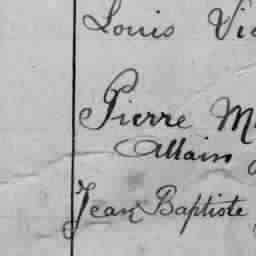 Louis Vic
Pierre M
Allain
Jean Baptiste